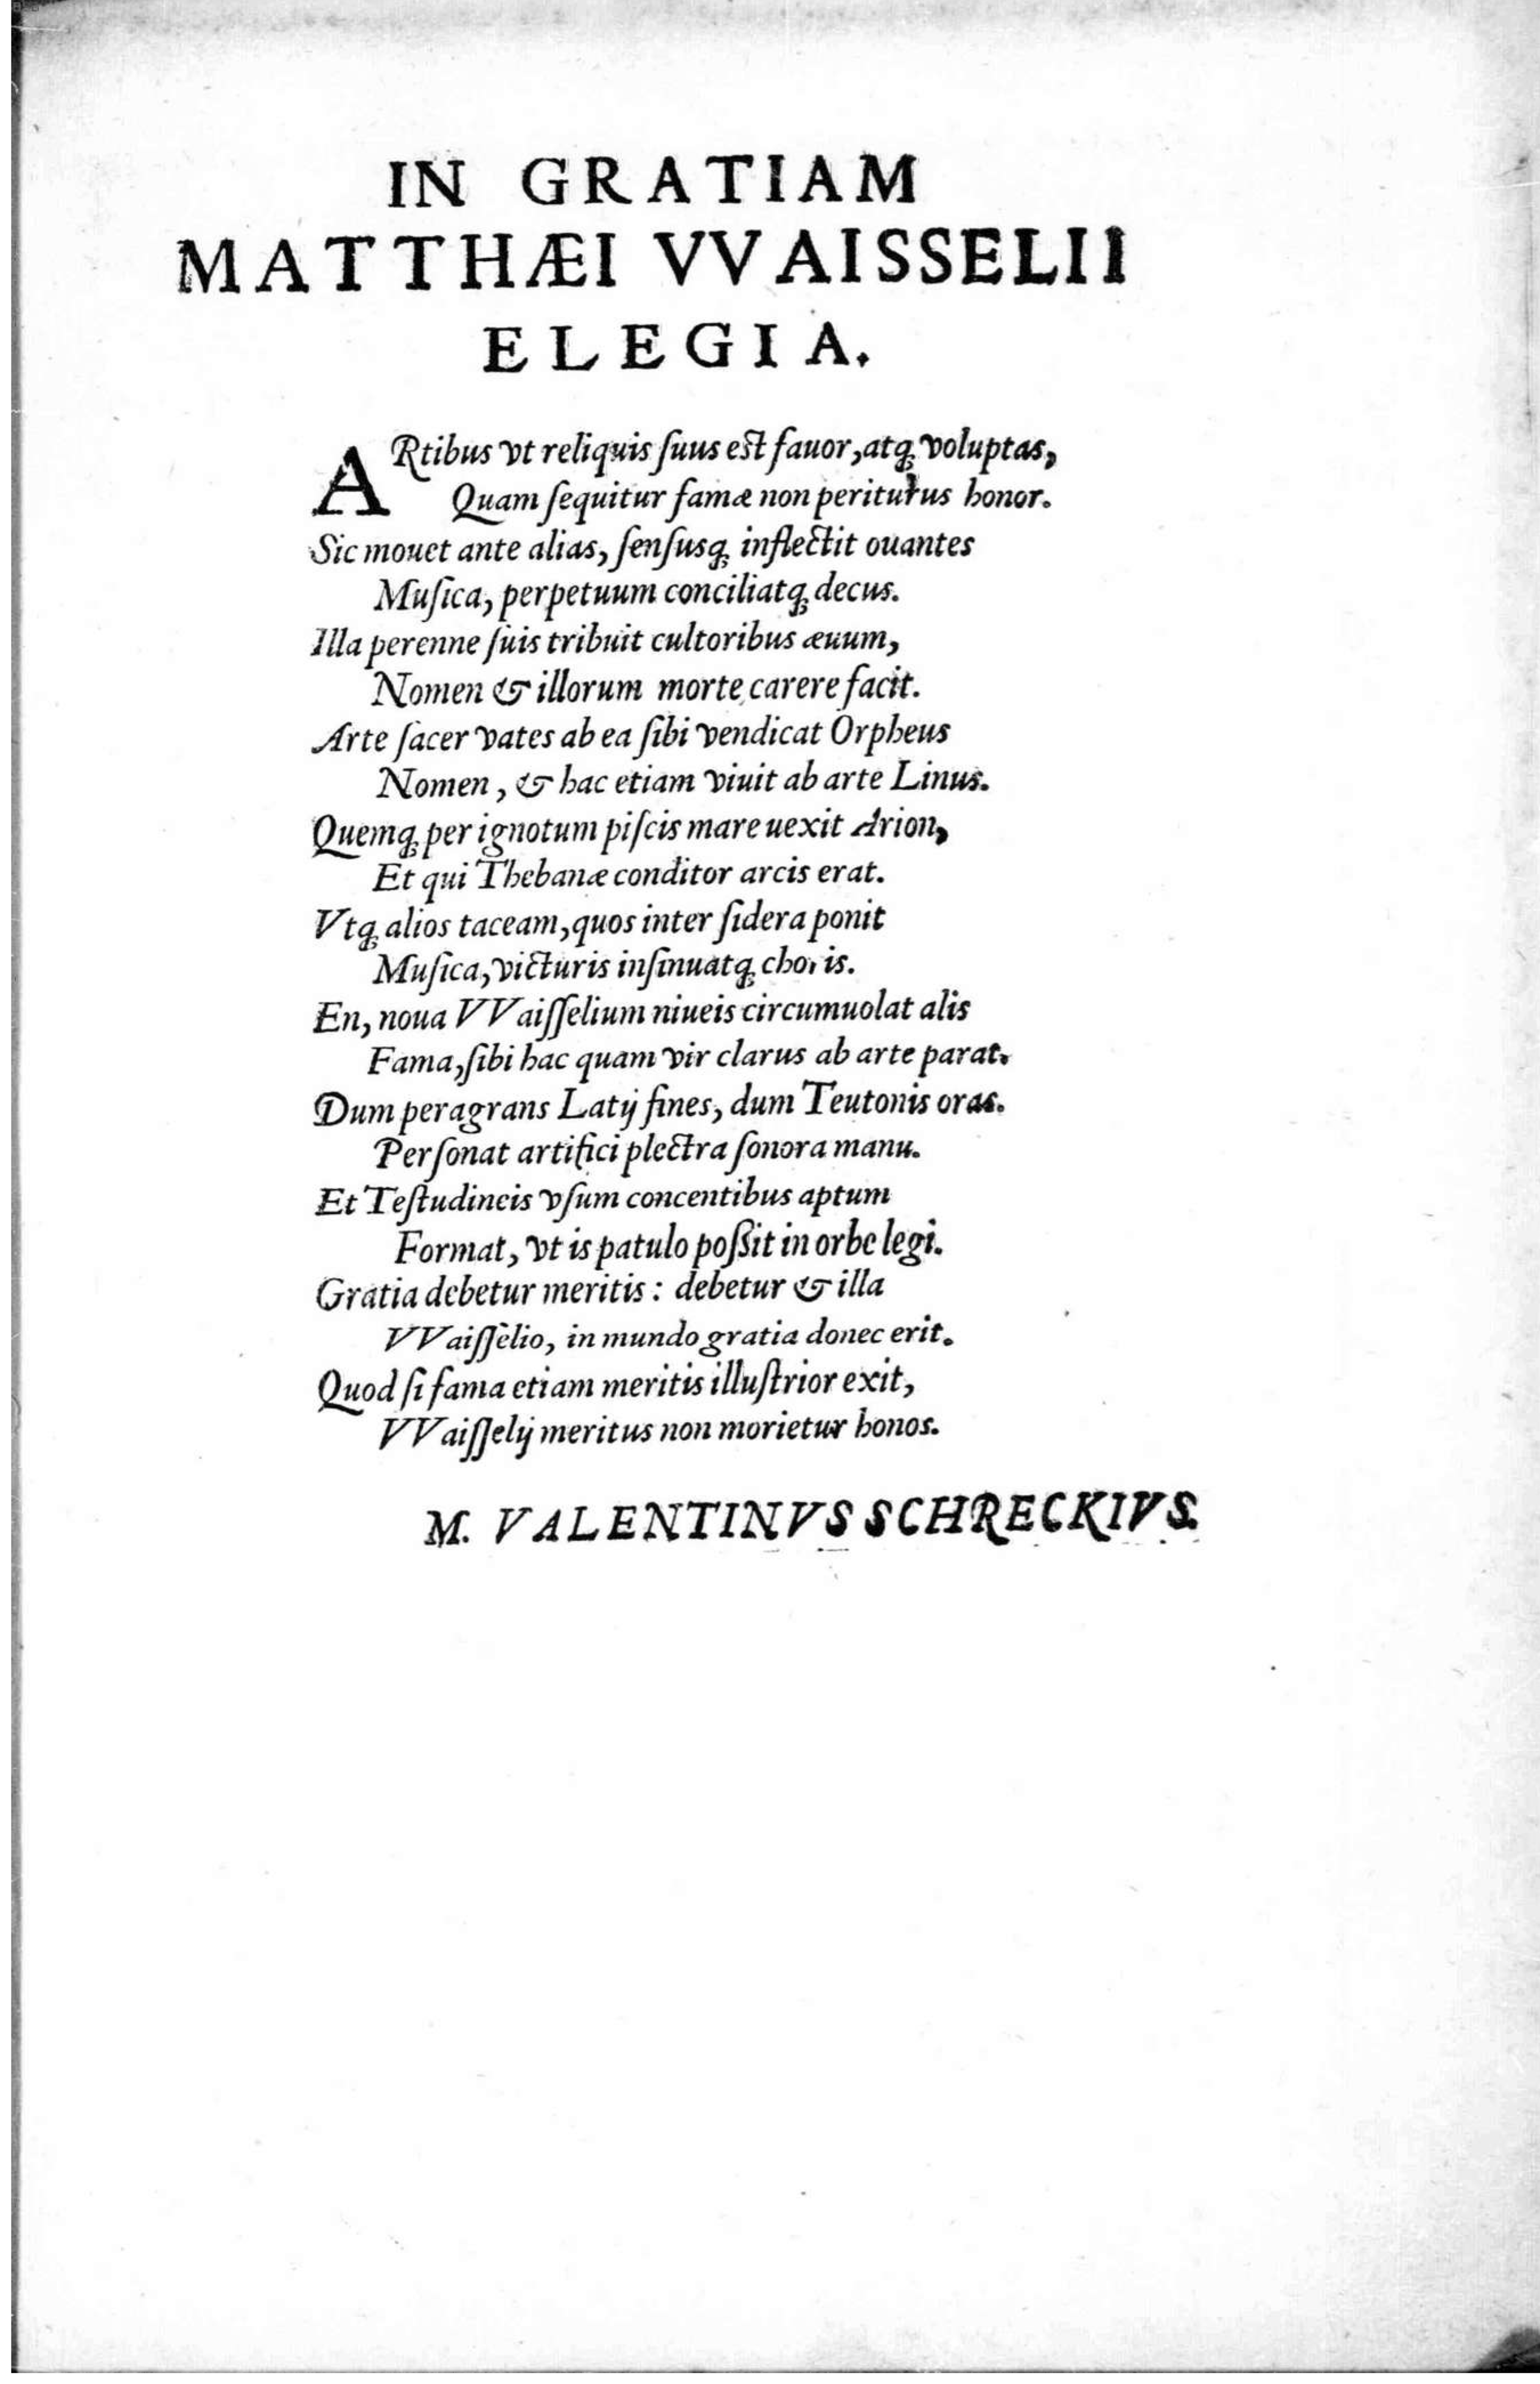 IN GRATIAM
MATTHÆI VVAISSELII
ELEGIA.
ARtibus vt reliquis ſuus eſt fauor, atq; voluptas,
Quam ſequitur famæ non periturus honor.
Sic mouet ante alias, ſenſusq; inflectit ouantes
Muſica, perpetuum conciliatq; decus.
Illa perenne ſuis tribuit cultoribus æuum,
Nomen & illorum morte carere facit.
Arte ſacer vates ab ea ſibi vendicat Orpheus
Nomen, & hac etiam viuit ab arte Linus.
Quemq; per ignotum piſcis mare uexit Arion,
Et qui Thebanæ conditor arcis erat.
Vtq; alios taceam, quos inter ſidera ponit
Muſica, victuris inſinuatq; choris.
En, noua VVaiſſelium niueis circumuolat alis
Fama, ſibi hac quam vir clarus ab arte parat.
Dum peragrans Latij fines, dum Teutonis oras.
Perſonat artifici plectra ſonora manu.
Et Teſtudineis vſum concentibus aptum
Format, vt is patulo poſſit in orbe legi.
Gratia debetur meritis: debetur & illa
VVaiſſelio, in mundo gratia donec erit.
Quod ſi fama etiam meritis illuſtrior exit,
VVaiſſelij meritus non morietur honos.
M. VALENTINVS SCHRECKIVS.